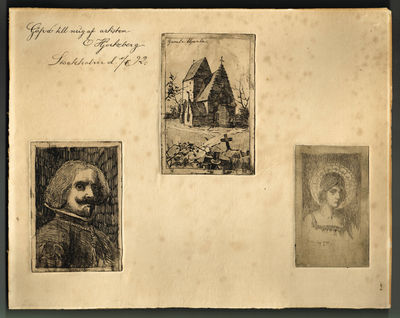 Gåfva till mig af artisten
E Hjortzberg
Stockholm d. 7/6 92.
Gamla Upsala